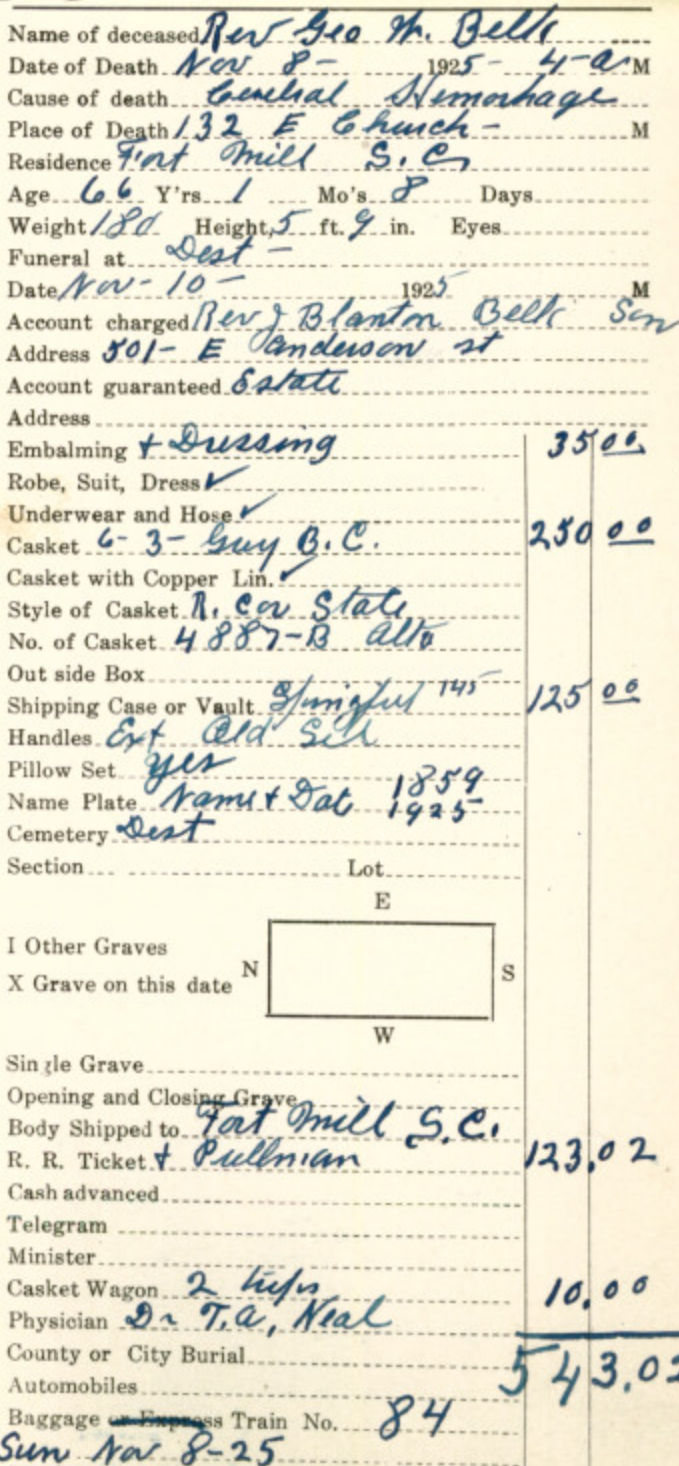 Name of deceased Rev Geo W. Belk
Date of Death Nov 8 - 1925 - 4-a M
Cause of death Cerebral Hemorhage
Place of Death 132 E Church - M
Residence Fort Mill S.C.
Age 66 Y'rs 1 Mo's 8 Days
Weight 180 Height, 5 ft. 9 in. Eyes
Funeral at Dest -
Date Nov - 10 - 1925 M
Account charged Rev J Blanton Belk Son
Address 501 - E Anderson st
Account guaranteed Estate
Address
Embalming + Dressing 35 00
Robe, Suit, Dress ✓
Underwear and Hose ✓
Casket 6-3- Guy B.C. 250 00
Casket with Copper Lin. ✓
Style of Casket R. Cov State
No. of Casket 4887-B Alto
Out side Box
Shipping Case or Vault 145 125 00
Handles Ext Old Sil
Pillow Set yes
Name Plate Name + Dat 1859
1925
Cemetery Dest
Section Lot
E
I Other Graves
N S
X Grave on this date
W
Single Grave
Opening and Closing Grave
Body Shipped to Fort Mill S.C.
R. R. Ticket + Pullman 123.02
Cash advanced
Telegram
Minister
Casket Wagon 2 trips 10.00
Physician Dr T.A. Neal
County or City Burial 543.02
Automobiles
Baggage or Express Train No. 84
Sun Nov 8-25